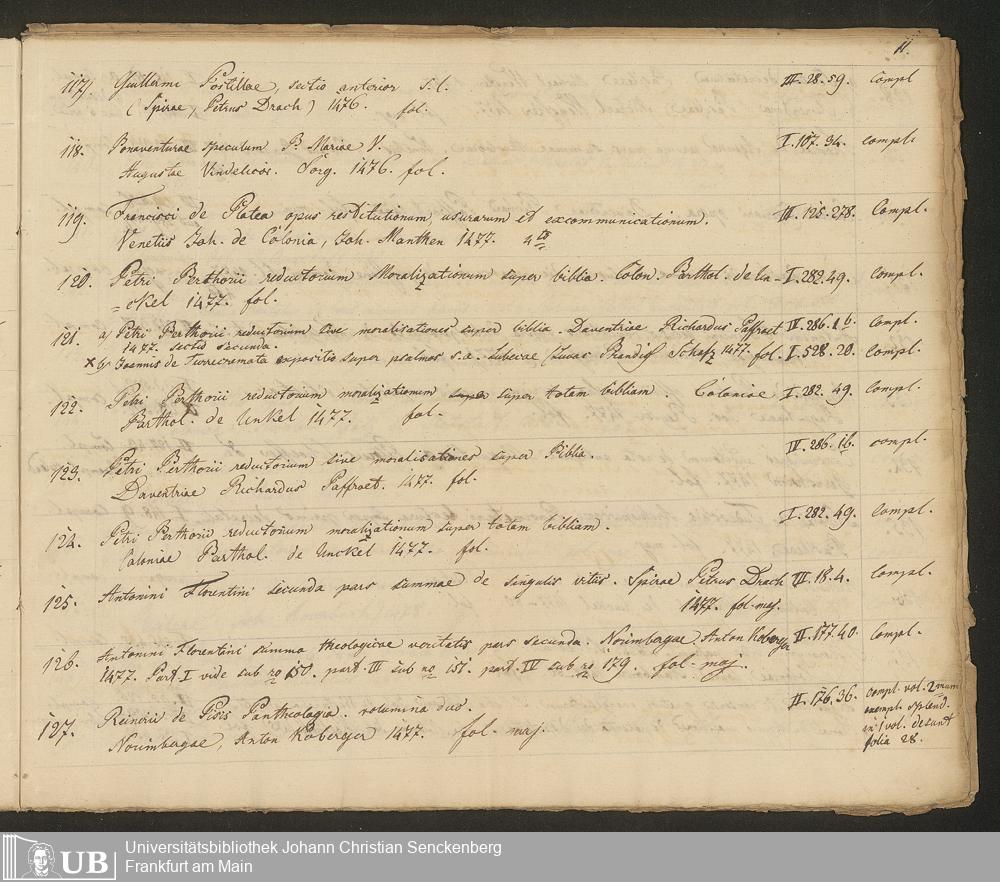 11.
117) Guillermi Postillae, sectio anterior s. l. III. 28. 59. compl
(Spirae, Petrus Drach) 1476. fol.
118. Bonaventurae speculum B. Mariae V. I. 107. 34. compl.
Augustae Vindelicor. Sorg. 1476. fol.
119. Francisci de Platea opus restitutionum usurarum et excommunicationum. III. 125. 278. Compl.
Venetiis Joh. de Colonia, Joh. Manthen 1477. 4to
120. Petri Berthorii reductorium Moralizationum super biblia. Colon. Barthol. de Un- I. 282. 49. compl.
=ckel 1477. fol.
121. a) Petri Berthorii reductorium sive moralisationes super biblia. Daventriae Richardus Paffraet IV. 286. 1b. compl.
1477. sectio secunda.
x b) Joannis de Turrecremata expositio super psalmos s. a. Lubecae (Lucas Brandis) Schafz 1477. fol. I. 528. 20. compl.
122. Petri Berthorii reductorium moralizationum super super totam bibliam. Coloniae I. 282. 49. compl.
Barthol. de Unkel 1477. fol.
123. Petri Berthorii reductorium sive moralisationes super Biblia. IV. 286. 1b. compl.
Daventriae Richardus Paffraet. 1477. fol.
124. Petri Berthorii reductorium moralizationum super totam bibliam. I. 282. 49. compl.
Coloniae Barthol. de Unckel 1477. fol.
125. Antonini Florentini secunda pars summae de singulis vitiis. Spirae Petrus Drach III. 18. 4. compl.
1477. fol. maj.
126. Antonini Florentini summa theologicae veritatis pars secunda. Norimbergae Anton Koberger II. 177. 40. compl.
1477. Part. I vide sub no 150. part. III sub no 151. part. IV sub no 179. fol. maj.
127. Reinerii de Pisis Pantheologia. volumina duo. II. 176. 36. compl. vol. 2mum
Norimbergae, Anton Koberger 1477. fol. maj.
exempl. splend.
in 1 vol. desunt
folia 28.
UB
Universitätsbibliothek Johann Christian Senckenberg
Frankfurt am Main